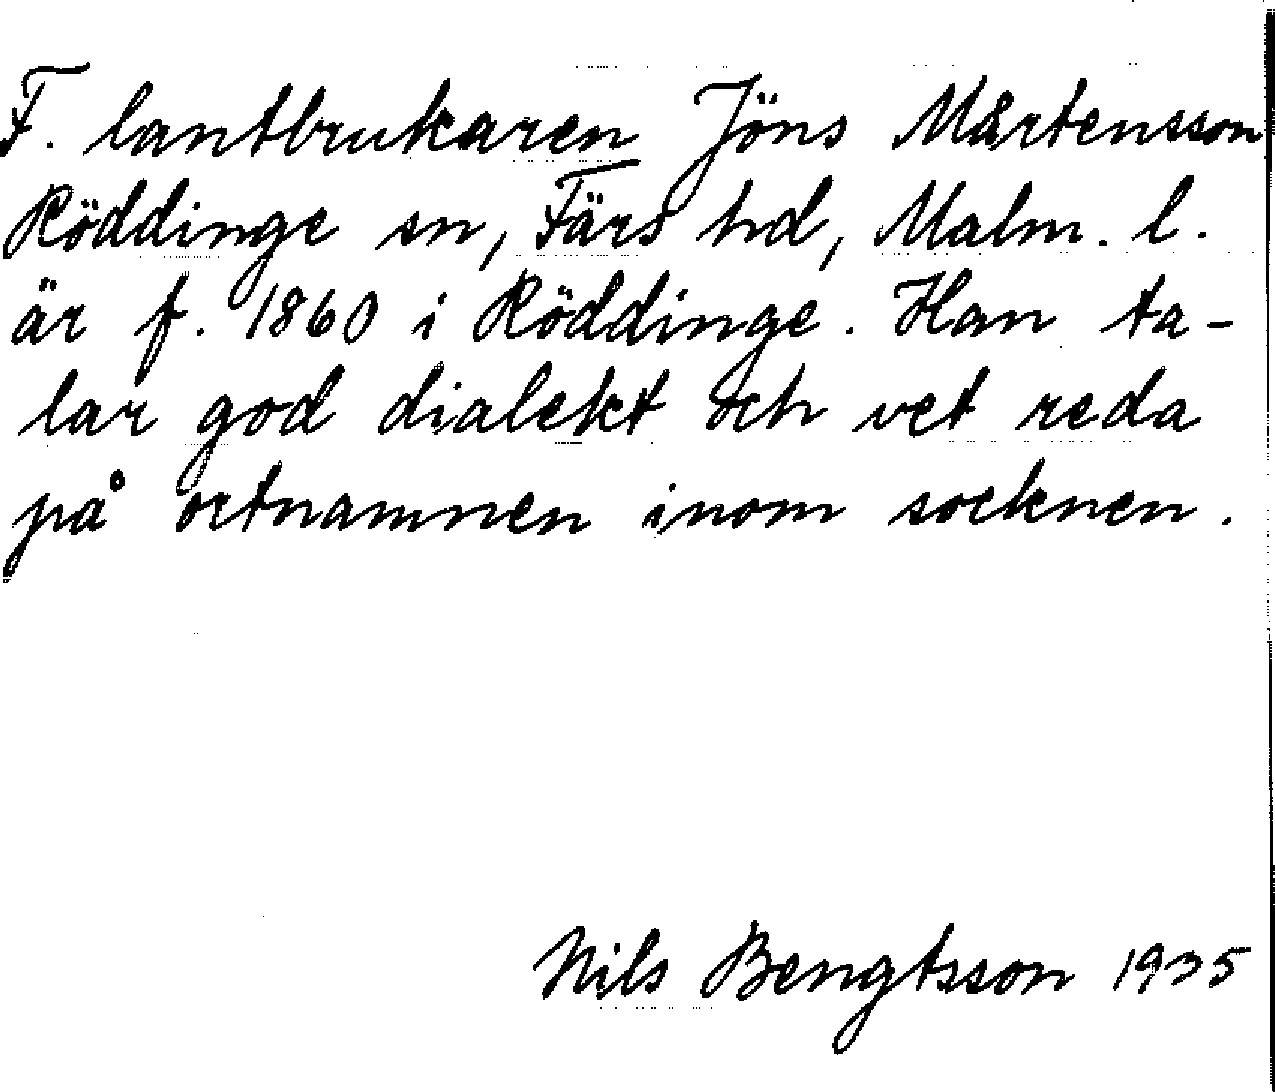 F. lantbrukaren Jöns Mårtensson
Röddinge sn, Färs hd, Malm. l.
är f. 1860 i Röddinge. Han ta-
lar god dialekt och vet reda
på ortnamnen inom socknen.
Nils Bengtsson 1935